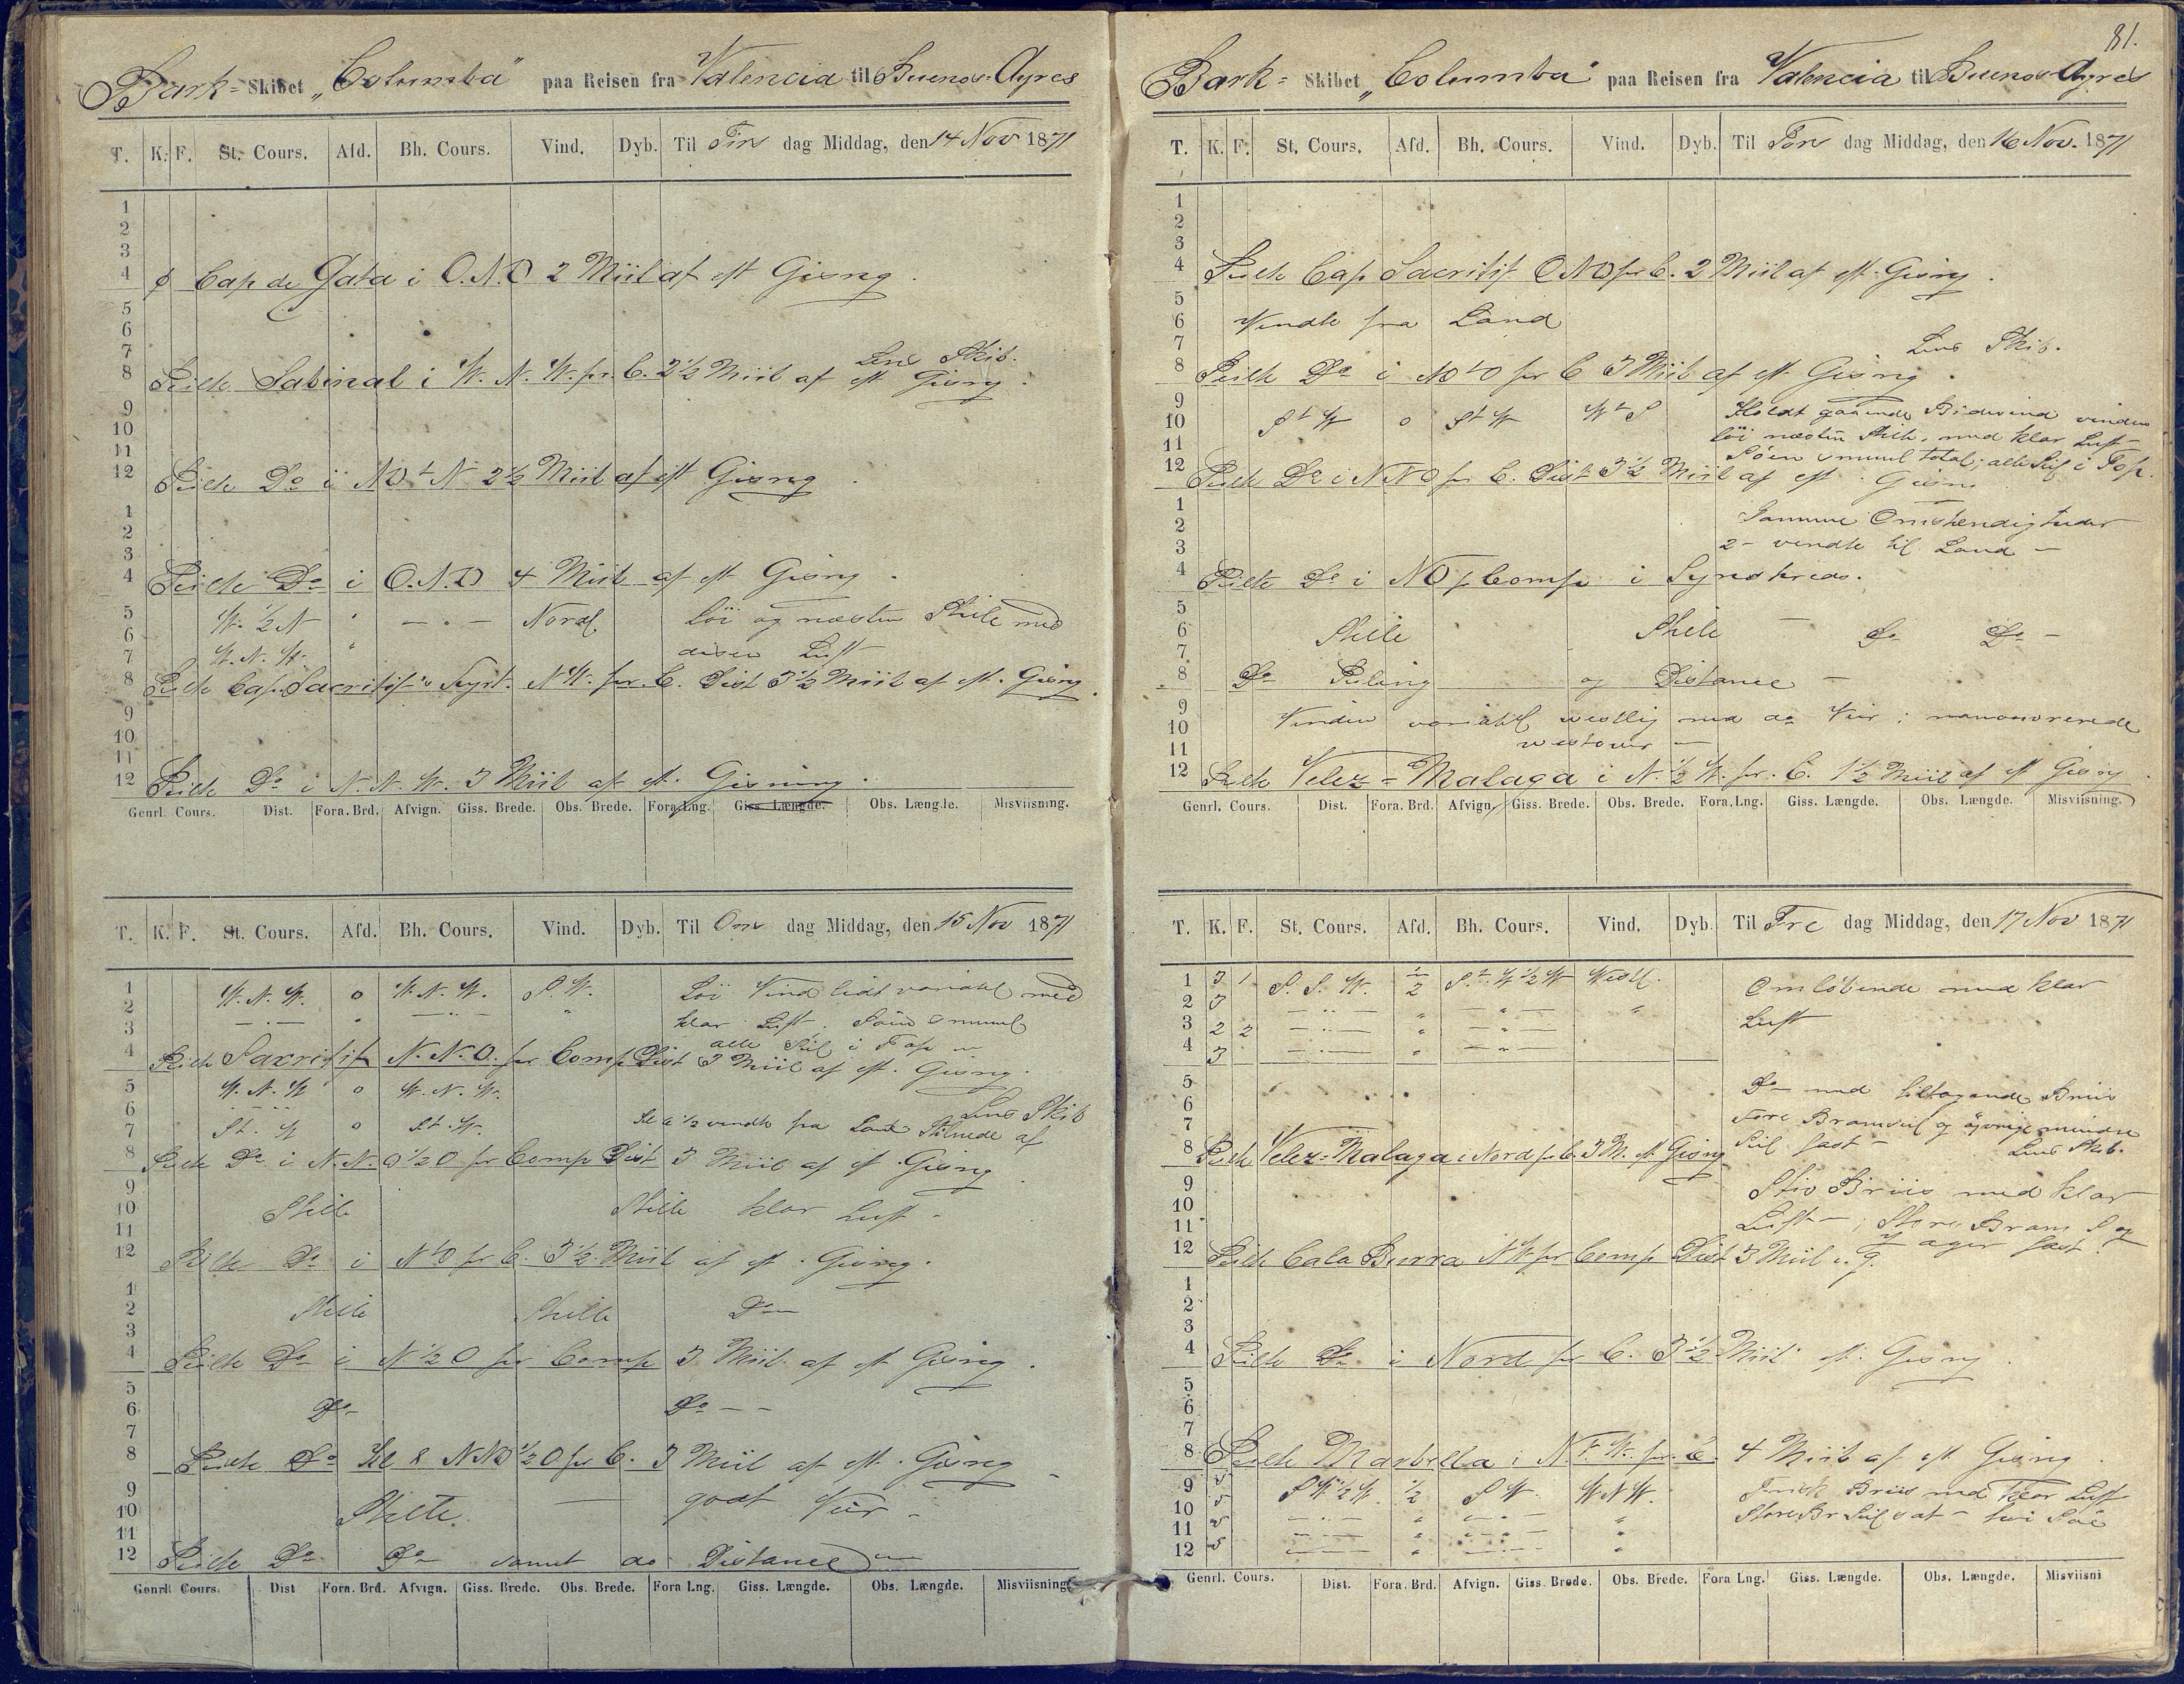 Bark- Skibet „Columba" paa Reisen fra Valencia til Buenos-Ayres
T. K. F. St. Cours. Afd. Bh. Cours. Vind. Dyb. Til Tirs dag Middag, den 14 Nov 1871
1
2
3
4 Cap de Gata i O.N.O 2 Miil af eft Gisng.
5
6
7 Lens Skib.
8 Peilte Sabinal i W. N. W. pr. C. 2½ Miil af eft Gisng.
9
10
11
12 Peilte Do i NOtN 2½ Miil af eft Gisng.
1
2
3
4 Peilte Do i O.N.O 4 Miil af eft Gisng.
5 W. ½ N " — " — Nordl. Löi og næsten Stille med
6 W. N. W. "
7 diset Luft
8 Peilte Cap. Sacritif N.W. pr. C. Dist 3½ Miil af eft. Gisng.
9
10
11
12 Peilte Do i N. N. W. 3 Miil af eft. Gisning.
Genrl. Cours. Dist. Fora. Brd. Afvign. Giss. Brede. Obs. Brede. Fora Lng. Giss. Længde. Obs. Længde. Misviisning.
T. K. F. St. Cours. Afd. Bh. Cours. Vind. Dyb. Til Ons dag Middag, den 15 Nov 1871
1 W. N. W. o W. N. W. S. W. Löi Vind lidt variabel med
2 — " — " — " — "
3 klar Luft. Söen smul
alle Seil i Top
4 Peilte Sacritif N. N. O. pr Comp Dist 3 Miil af eft. Gisng.
5 W. N. W o W. N. W.
6 Lens Skib
7 St. W o St. W. Kl a ½ vendte fra Land Stilnede af
8 Peilte Do i N. N. O ½ O pr Comp Dist 3 Miil af eft Gisng.
9
10 Stille Stille klar Luft -
11
12 Peilte Do i NtO pr C. 3½ Miil af eft. Gisng.
1
2 Stille Stille Do
3
4 Peilte Do i N ½ O pr Comp 3 Miil af eft Gisng.
5
6 Do Do — —
7
8 Peilte Do Kl 8 NNO ½ O pr C. 3 Miil af eft. Gisng
9
10 Stille. — godt Veir -
11
12 Peilte Do Do samt do Distance
Genrl. Cours. Dist Fora. Brd. Afvign. Giss. Brede. Obs. Brede. Fora Lng. Giss. Længde. Obs. Længde. Misviisning
81.
Bark- Skibet „Columba" paa Reisen fra Valencia til Buenos-Ayres
T. K. F. St. Cours. Afd. Bh. Cours. Vind. Dyb. Til Tors dag Middag, den 16 Nov. 1871
1
2
3
4 Peilte Cap Sacritif ONO pr C. 2 Miil af eft Gisng.
5
6 Vendte fra Land
7 Lens Skib.
8 Peilte Do i NOtO pr C 3 Miil af eft. Gisng.
9 Holdt gaaende Bidevind vinden
10 StW o StW WtS löi næsten Stille, med klar Luft
11 Söen smul total; alle Seil i Top.
12 Peilte Do i NNO pr C. Dist 3½ Miil af eft. Gisng
1
2 Samme Omstendigheder
3 2 - vendte til Land -
4 Peilte Do i NO p Comp i Synskreds.
5
6 Stille Stille — Do Do -
7
8 Do Peiling og Distance -
9 Vinden variabel westlig med do Veir; manouvrerede
10
11 westover -
12 Peilte Velez-Malaga i N. ½ W. pr. C. 1½ Miil af eft Gisng.
Genrl. Cours. Dist. Fora. Brd. Afvign. Giss. Brede. Obs. Brede. Fora. Lng. Giss. Længde. Obs. Længde. Misviisning.
T. K. F. St. Cours. Afd. Bh. Cours. Vind. Dyb. Til Fre dag Middag, den 17 Nov 1871
1 3 1 S. S. W. ½ St. W ½ W Westl. Omlöbende med klar
2 3 — " — " — " — "
3 2 2 — " — " — " — Luft
4 3 — " — " — " —
5 Do med tiltagende Briis
6
7 Fore Bramseil og övrige mindre
8 Peilte Velez-Malaga i Nord pr C. 3 M. eft Gisng Seil fast - Lens Skib.
9 Stiv Briis med klar
10
11 Luft -; Store Bram S og
12 Peilte Cala Burra NW pr Comp Dist 3 Miil e. g. Jager fast.
1
2
3
4 Peilte Do i Nord pr C. 3½ Miil eft. Gisng.
5
6
7
8 Peilte Marbella i pr. C. 4 Miil af eft Gisng.
9 5 SW ½ W. ½ SW. WNW. Frisk Briis med klar Luft
10 5 — " — " — " — " Store Br Seil
11 5 — " — " — " — "
12 5 — " — " — " — "
Genrl. Cours. Dist. Fora. Brd. Afvign. Giss. Brede. Obs. Brede. Fora Lng. Giss. Længde. Obs. Længde. Misviisni